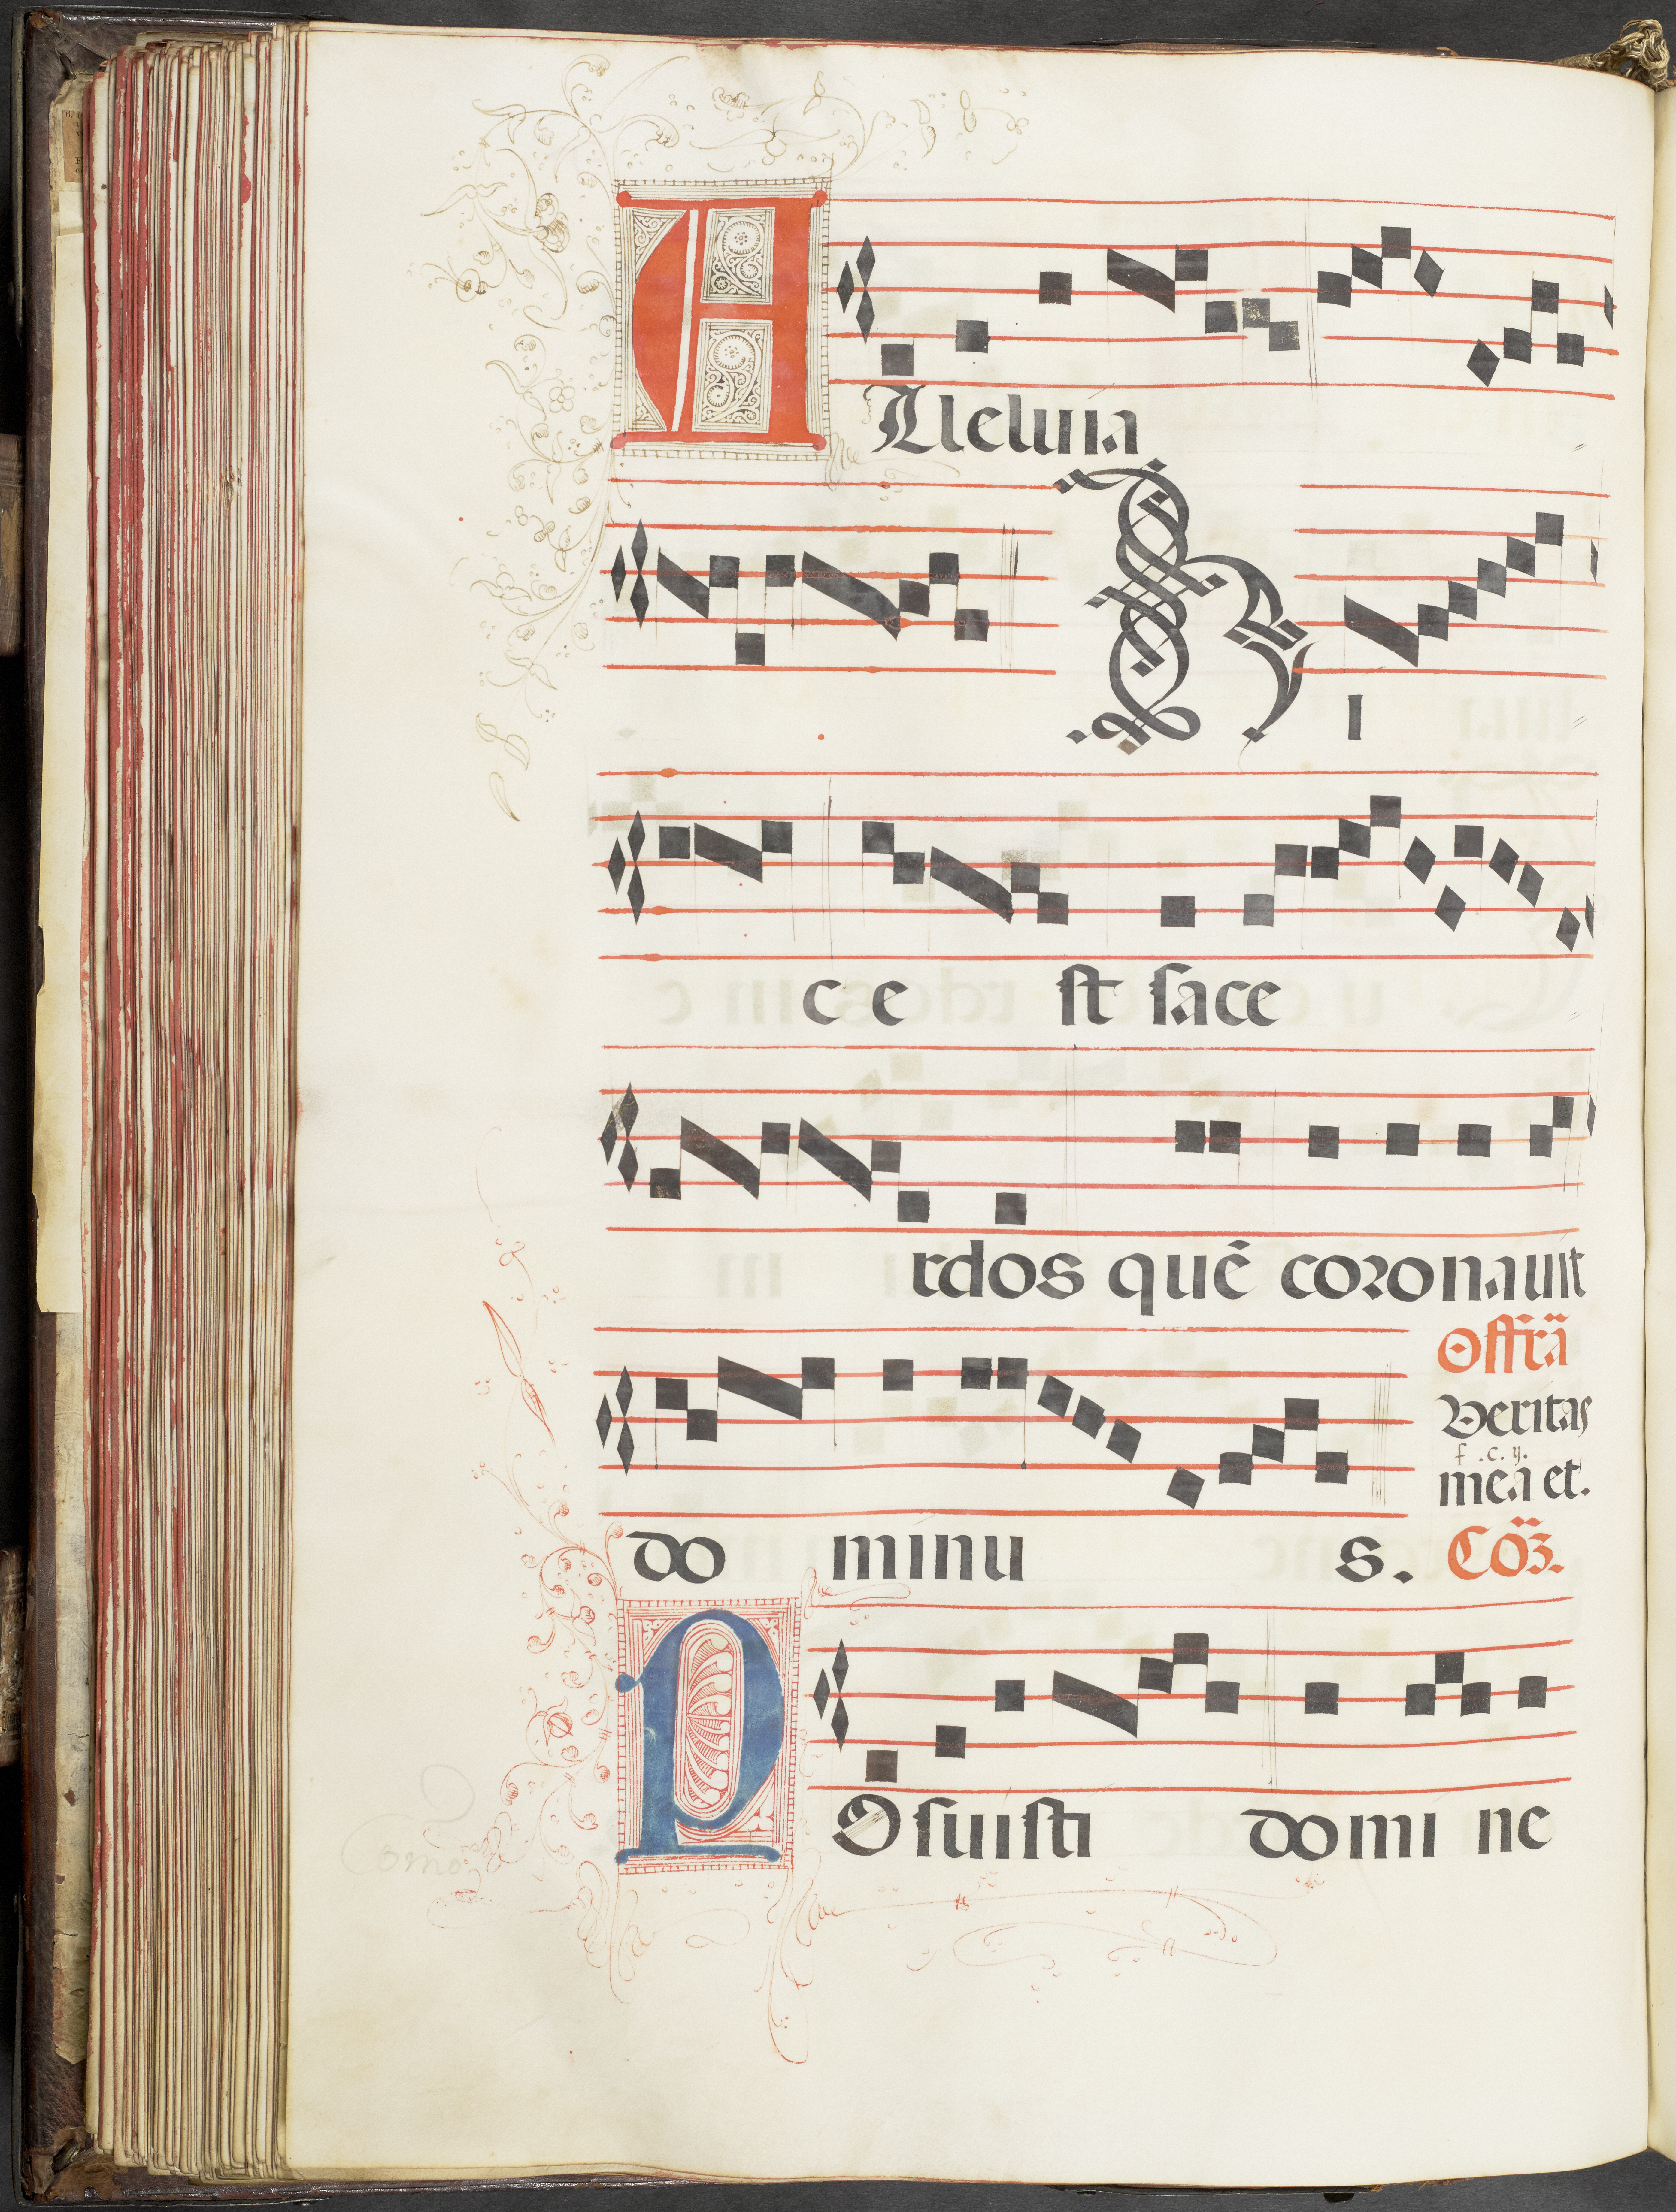 ALleluia
H I
c e st sace
rdos quē coronauit
Offr̄a
Veritas
f .c. y.
mea et.
do minu s. Cō3.
POsuisti domi ne